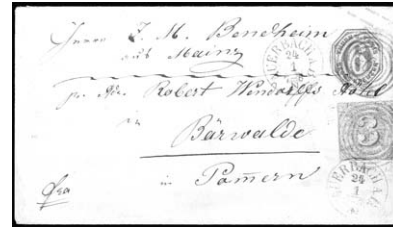 Herrn J. M. Bendheim
aus Mainz
pr. Adr. Robert Wendorffs Hotel
in
Bärwalde
in Pom̄ern
fra
AUERBACH A/B
24
1
3
AUERBACH A/B
24
1